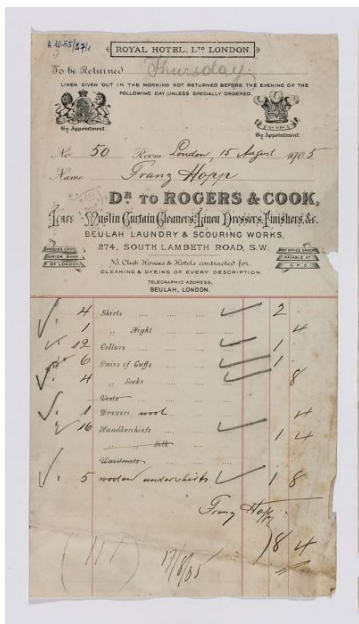 A 1685/271
ROYAL HOTEL, LTD LONDON.
To be Returned Thursday
LINEN GIVEN OUT IN THE MORNING NOT RETURNED BEFORE THE EVENING OF THE
FOLLOWING DAY UNLESS SPECIALLY ORDERED.
By Appointment By Appointment
No 50 Room London, 15 August 1905
Name Franz Hopp
DR. TO ROGERS & COOK,
Lace Muslin Curtain Cleaners, Linen Dressers, Finishers, &c.
BEULAH LAUNDRY & SCOURING WORKS,
274, SOUTH LAMBETH ROAD, S.W.
CHEQUES CROSS UNION BANK OF LONDON
POST OFFICE ORDERS PAYABLE AT S.P.O.
Club Houses & Hotels contracted for.
CLEANING & DYEING OF EVERY DESCRIPTION.
TELEGRAPHIC ADDRESS,
BEULAH, LONDON.
4 Shirts 2
1 " Night 4
12 Collars 1
6 Pairs of Cuffs 1
4 " Socks 8
Vests
1 Drawers wool 4
16 Handkerchiefs 1 4
" Silk
Waistcoats
5 woolen undershirts 1 8
Franz Hopp
8 4
17/8/05